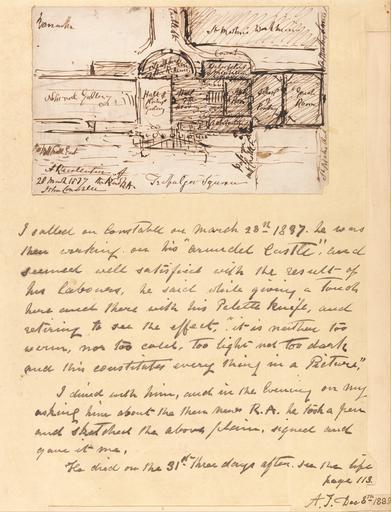 Barracks
St Martins Workhouse
Court
National Gallery
Hall &
Room
Trafalgar Square
28 March 1837
John Constable
I called on Constable on March 28th 1837. he was
then working on his "Arundel Castle", and
seemed well satisfied with the result of
his labours, he said while giving a touch
here and there with his Palette knife, and
retiring to see the effect, "it is neither too
warm, nor too cold, too light nor too dark
and this constitutes every thing in a Picture."
I dined with him, and in the Evening on my
asking him about the then new R.A. he took a pen
and sketched the above plan, signed and
gave it me.
He died on the 31st three days after. see the life
page 113.
A.T. Dec 8th